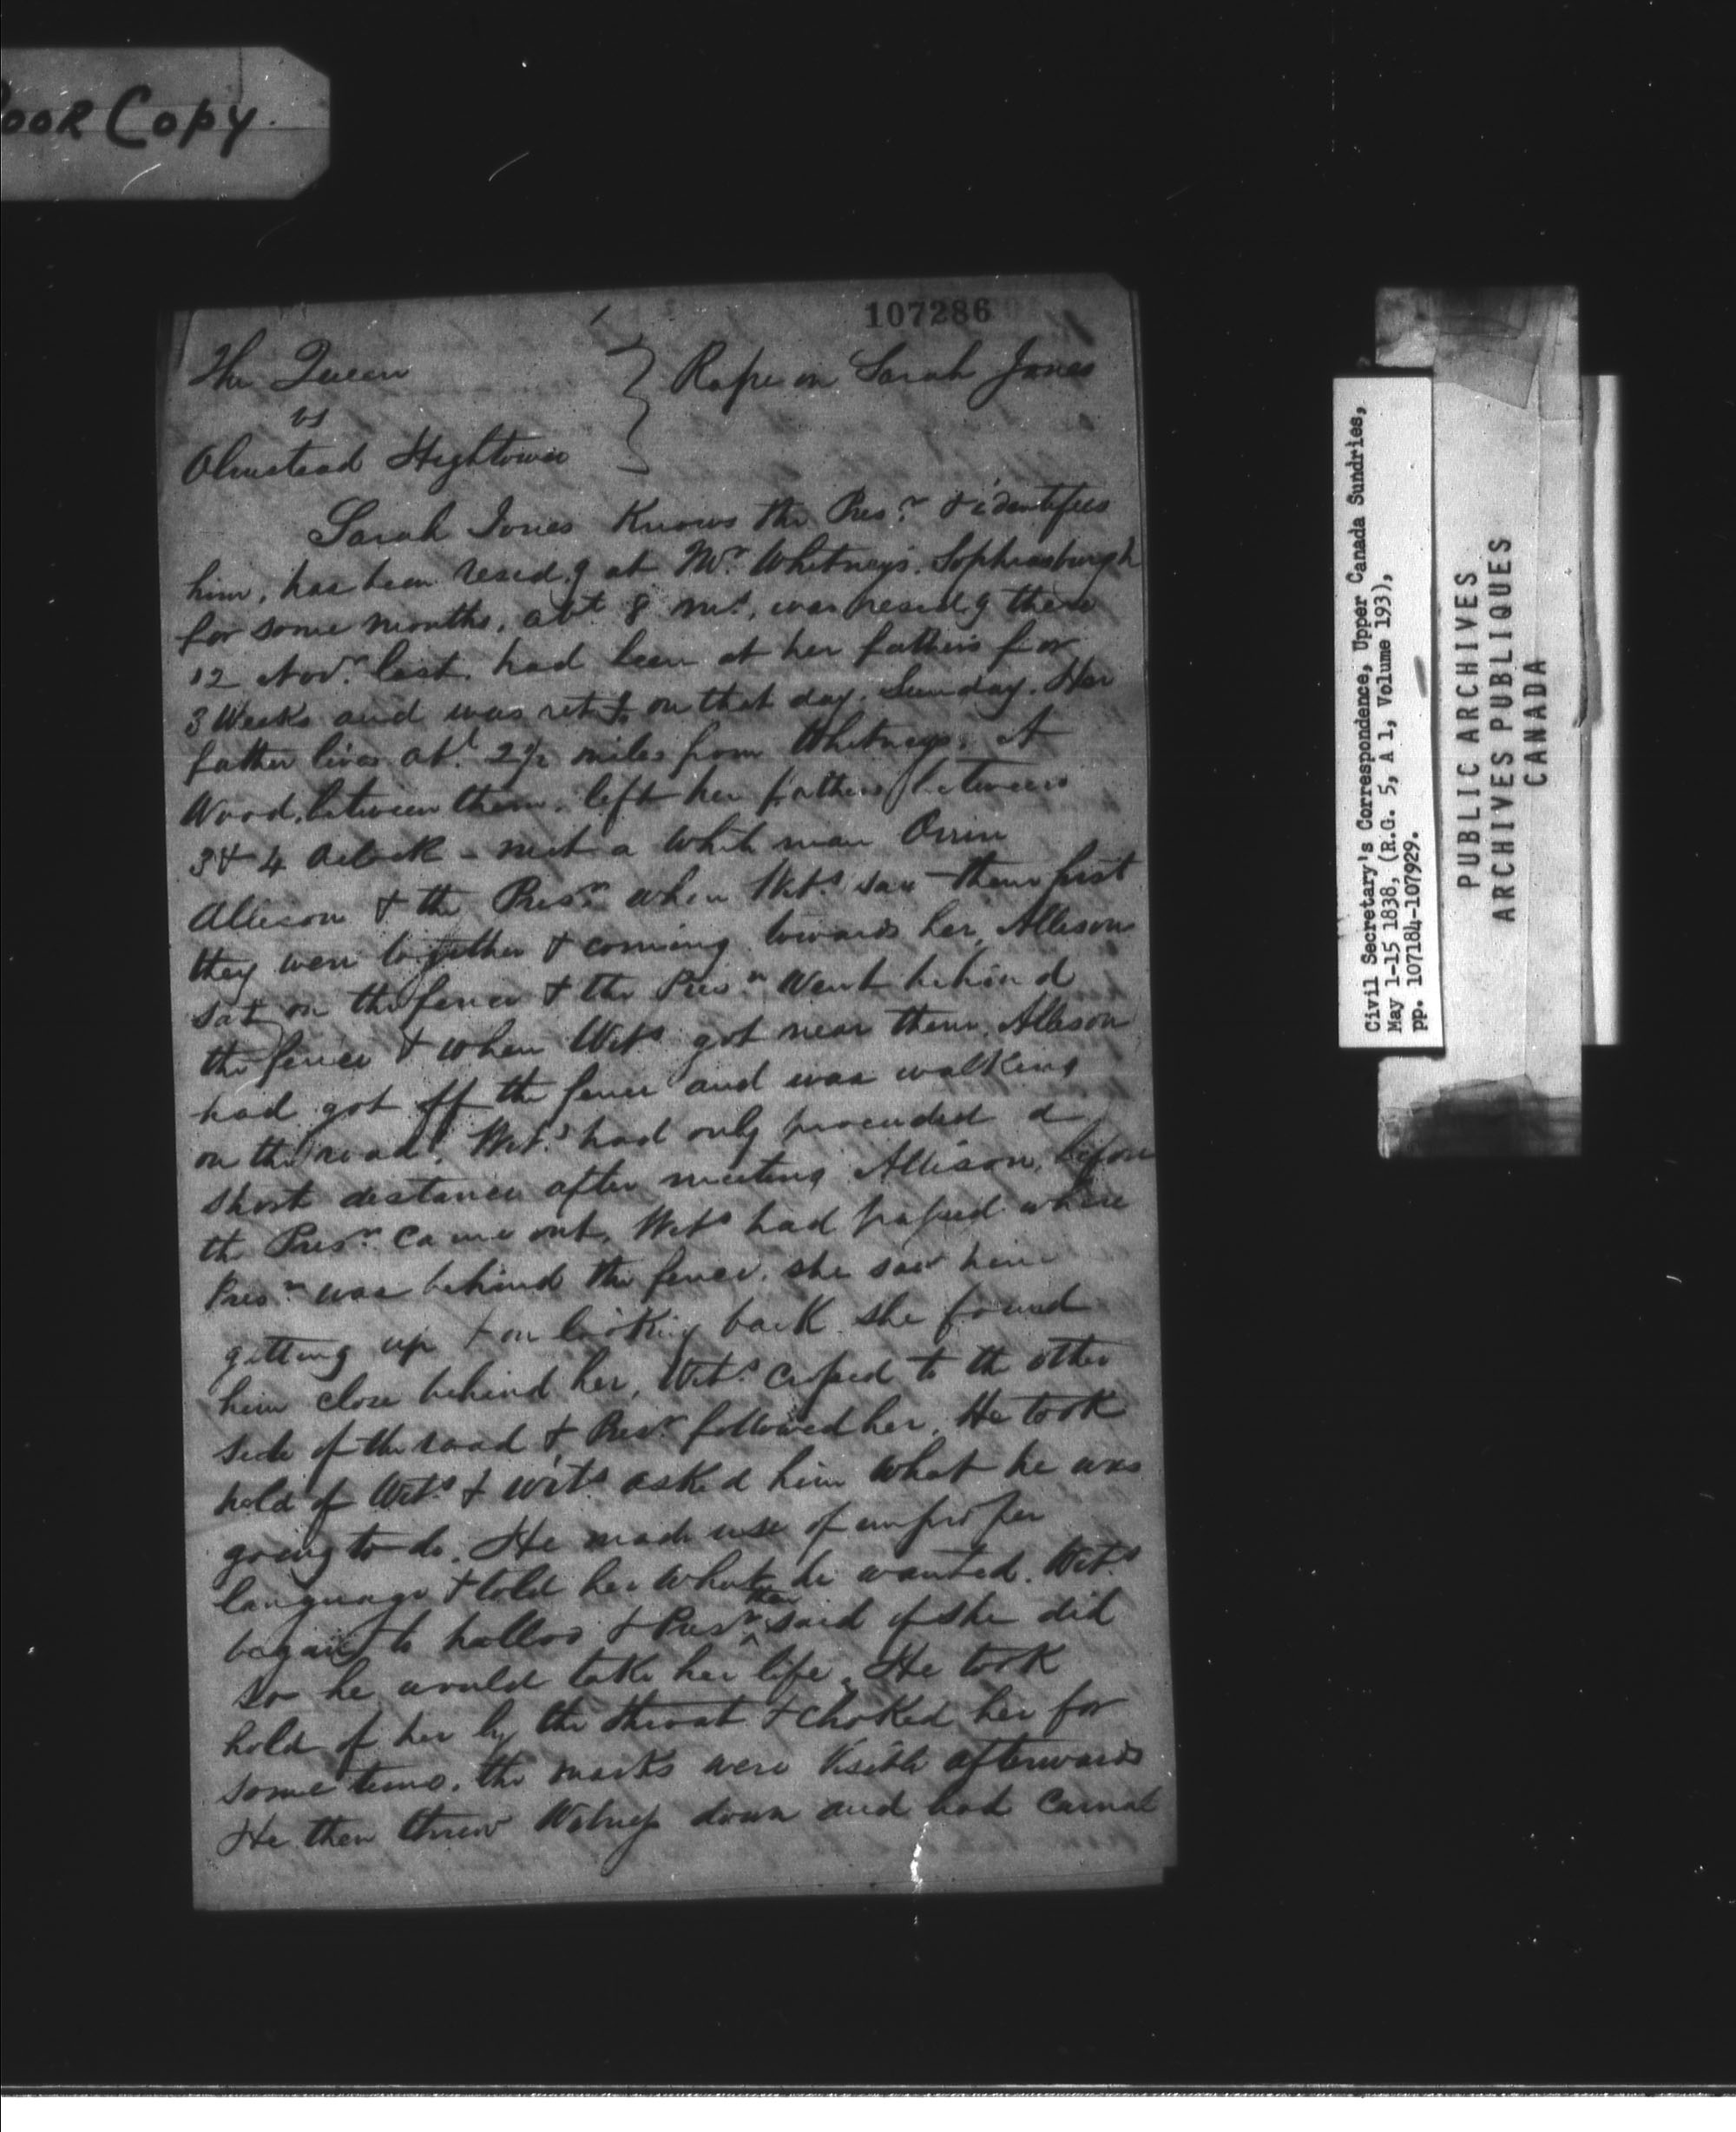 Poor Copy.
107286
The Queen
vs
Olmstead Hightower
} Rape on Sarah Jones
Sarah Jones Knows the Prisr. & identifies
him, has been resid.g at Mr. Whitneys. Sophiasburgh
for some months, abt. 8 ms., was resid.g there
12 Novr. last. had been at her fathers for
3 Weeks and was ret.g on that day. Sunday. Her
father lives abt. 2½ miles from Whitneys. A
Wood, between them. left her fathers between
3 & 4 Oclock - met a white man Orrin
Allison & the Prisr. when Wits. saw them first
they were together & coming towards her. Allison
sat on the fence & the Prisr. Went behind
the fence & when Wits. got near them. Allison
had got off the fence and was walking
on the road. Wits. had only proceeded a
short distance after meeting Allison, before
the Prisr. came out. Wits. had passed where
Prisr. was behind the fence. she saw him
getting up & on looking back she found
him close behind her, Wits. crossed to the other
side of the road & Prisr. followed her. He took
hold of Wits. & Wits. asked him what he was
going to do. He made use of improper
language & told her what he wanted. Wits.
began to halloo & Prisr. then said if she did
so he would take her life. He took
hold of her by the throat & choked her for
some time. the marks were visible afterwards
He then threw Witness down and had carnal
Civil Secretary's Correspondence, Upper Canada Sundries,
May 1-15 1838, (R.G. 5, A 1, Volume 193),
pp. 107184-107929.
PUBLIC ARCHIVES
ARCHIVES PUBLIQUES
CANADA